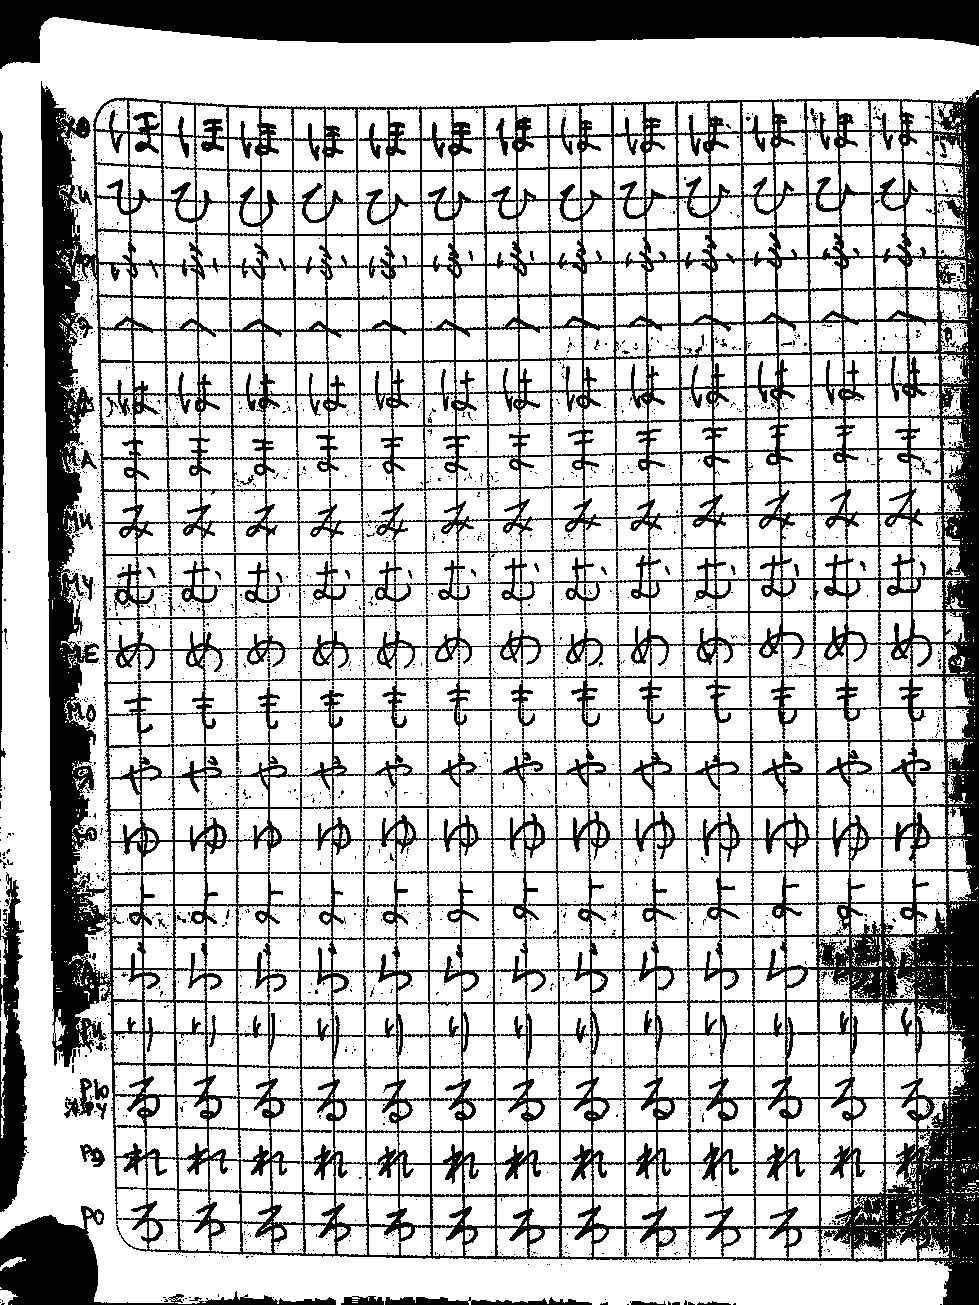 ほ ほ ほ ほ ほ ほ ほ ほ ほ ほ ほ ほ ほ
ХИ ひ ひ ひ ひ ひ ひ ひ ひ ひ ひ ひ ひ ひ
ふ ふ ふ ふ ふ ふ ふ ふ ふ ふ ふ ふ ふ
へ へ へ へ へ へ へ へ へ へ へ へ へ
は は は は は は は は は は は は は
МА ま ま ま ま ま ま ま ま ま ま ま ま ま
МИ み み み み み み み み み み み み み
МУ む む む む む む む む む む む む む
МЕ め め め め め め め め め め め め め
МО も も も も も も も も も も も も も
Я や や や や や や や や や や や や や
ゆ ゆ ゆ ゆ ゆ ゆ ゆ ゆ ゆ ゆ ゆ ゆ ゆ
よ よ よ よ よ よ よ よ よ よ よ よ よ
ら ら ら ら ら ら ら ら ら ら ら
РИ り り り り り り り り り り り り り
РЮ る る る る る る る る る る る る る
РЭ れ れ れ れ れ れ れ れ れ れ れ れ れ
РО ろ ろ ろ ろ ろ ろ ろ ろ ろ ろ ろ